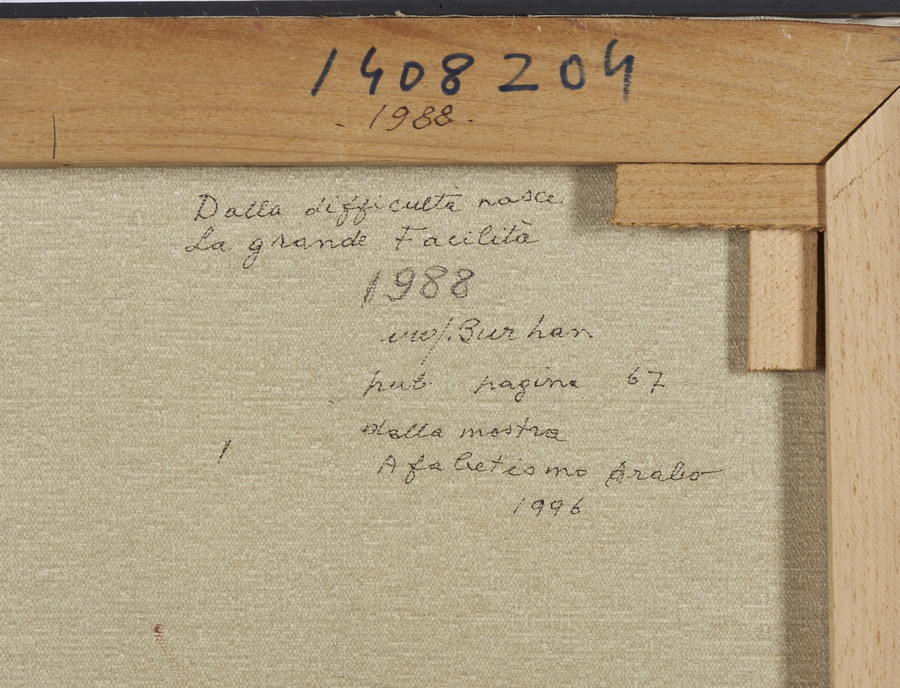 1408204
1988.
Dalla difficultà nasce
La grande Facilità
1988
Burhan
pub. pagina 67
dalla mostra
Afabetismo Arabo
1996